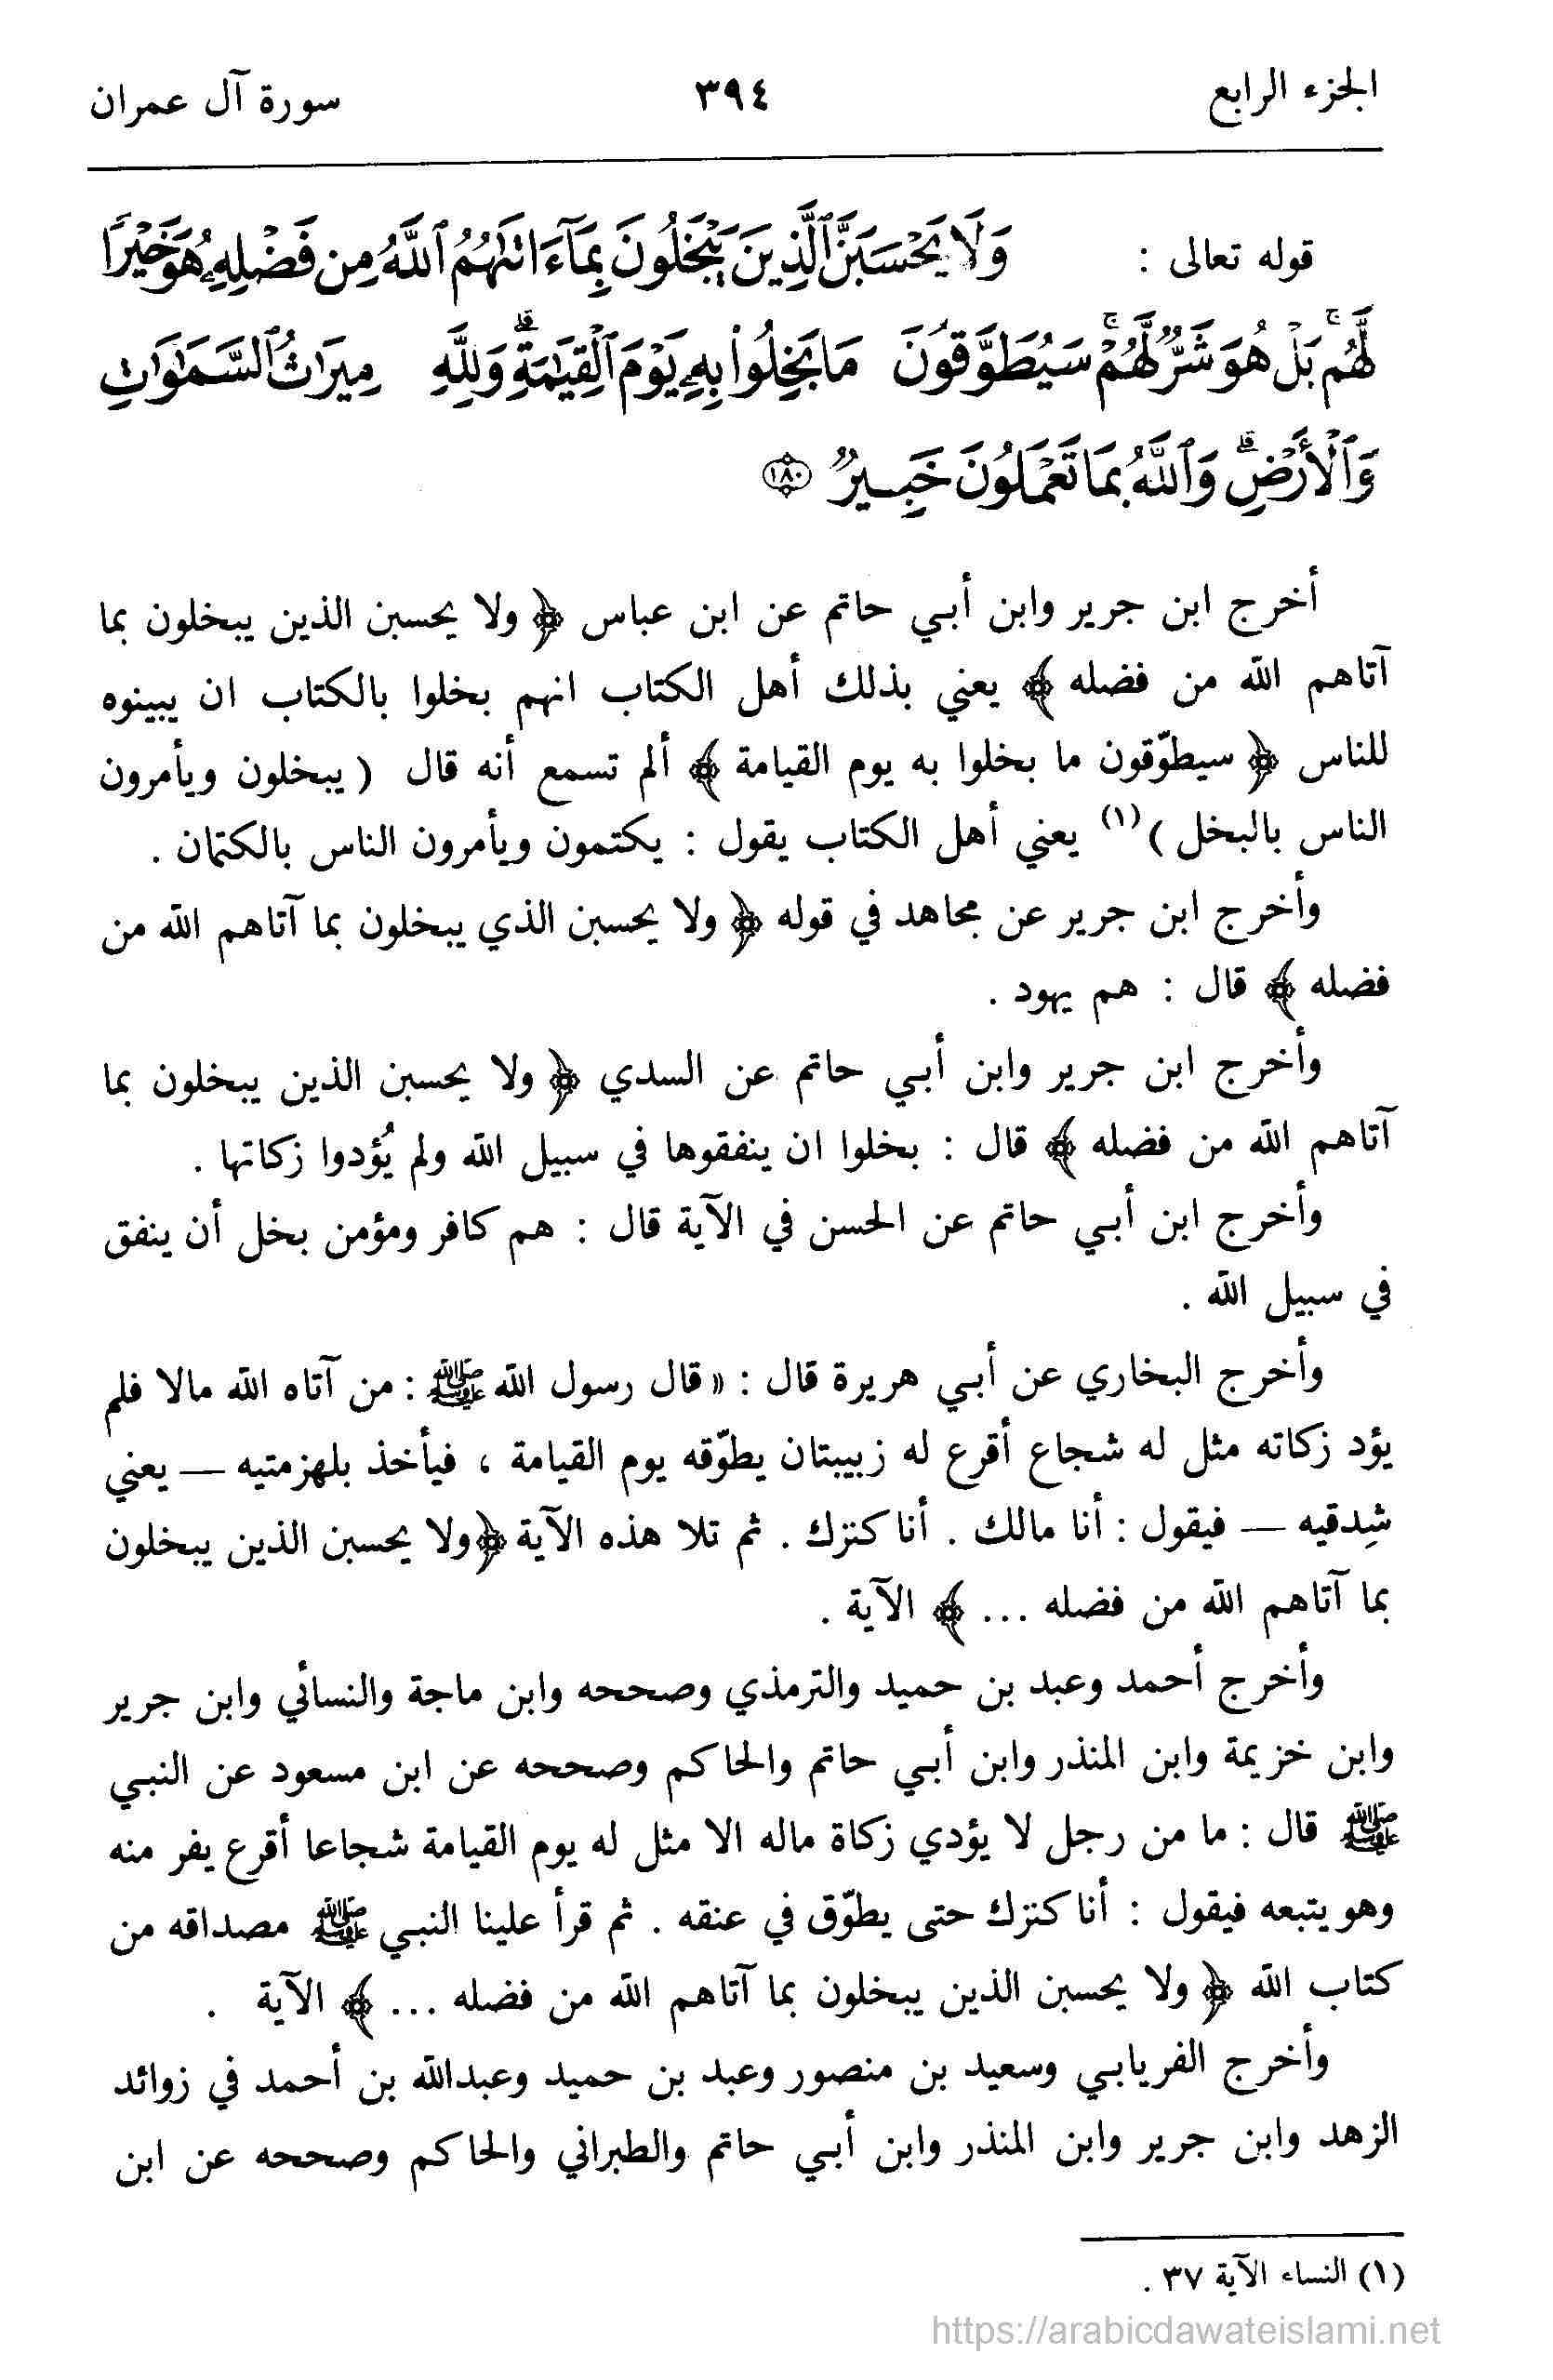 الجزء الرابع ٣٩٤ سورة آل عمران
قوله تعالى : وَلَا يَحْسَبَنَّ ٱلَّذِينَ يَبْخَلُونَ بِمَآ ءَاتَىٰهُمُ ٱللَّهُ مِن فَضْلِهِۦ هُوَ خَيْرًا
لَّهُم ۖ بَلْ هُوَ شَرٌّ لَّهُمْ ۖ سَيُطَوَّقُونَ مَا بَخِلُوا۟ بِهِۦ يَوْمَ ٱلْقِيَٰمَةِ ۗ وَلِلَّهِ مِيرَٰثُ ٱلسَّمَٰوَٰتِ
وَٱلْأَرْضِ ۗ وَٱللَّهُ بِمَا تَعْمَلُونَ خَبِيرٌ ١٨٠
أخرج ابن جرير وابن أبي حاتم عن ابن عباس ﴿ ولا يحسبن الذين يبخلون بما
آتاهم الله من فضله ﴾ يعني بذلك أهل الكتاب انهم بخلوا بالكتاب ان يبينوه
للناس ﴿ سيطوّقون ما بخلوا به يوم القيامة ﴾ ألم تسمع أنه قال ( يبخلون ويأمرون
الناس بالبخل )(١) يعني أهل الكتاب يقول : يكتمون ويأمرون الناس بالكتمان .
وأخرج ابن جرير عن مجاهد في قوله ﴿ ولا يحسبن الذي يبخلون بما آتاهم الله من
فضله ﴾ قال : هم يهود .
وأخرج ابن جرير وابن أبي حاتم عن السدي ﴿ ولا يحسبن الذين يبخلون بما
آتاهم الله من فضله ﴾ قال : بخلوا ان ينفقوها في سبيل الله ولم يُؤدوا زكاتها .
وأخرج ابن أبي حاتم عن الحسن في الآية قال : هم كافر ومؤمن بخل أن ينفق
في سبيل الله .
وأخرج البخاري عن أبي هريرة قال : « قال رسول الله ﷺ : من آتاه الله مالا فلم
يؤد زكاته مثل له شجاع أقرع له زبيبتان يطوّقه يوم القيامة ، فيأخذ بلهزمتيه — يعني
شِدقيه — فيقول : أنا مالك . أنا كنزك . ثم تلا هذه الآية ﴿ولا يحسبن الذين يبخلون
بما آتاهم الله من فضله ... ﴾ الآية .
وأخرج أحمد وعبد بن حميد والترمذي وصححه وابن ماجة والنسائي وابن جرير
وابن خزيمة وابن المنذر وابن أبي حاتم والحاكم وصححه عن ابن مسعود عن النبي
ﷺ قال : ما من رجل لا يؤدي زكاة ماله الا مثل له يوم القيامة شجاعا أقرع يفر منه
وهو يتبعه فيقول : أنا كنزك حتى يطوّق في عنقه . ثم قرأ علينا النبي ﷺ مصداقه من
كتاب الله ﴿ ولا يحسبن الذين يبخلون بما آتاهم الله من فضله ... ﴾ الآية .
وأخرج الفريابي وسعيد بن منصور وعبد بن حميد وعبدالله بن أحمد في زوائد
الزهد وابن جرير وابن المنذر وابن أبي حاتم والطبراني والحاكم وصححه عن ابن
(١) النساء الآية ٣٧ .
https://arabicdawateislami.net